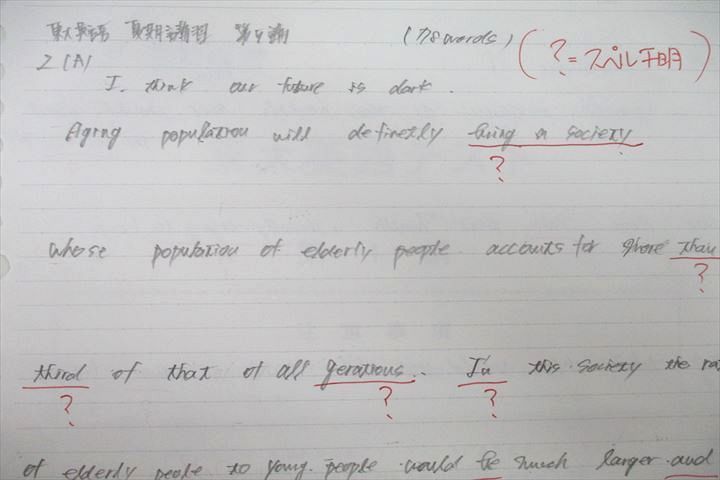 東大英語 夏期講習 第4講 (78 words) (?=スペル不明)
2 (A)
I think our future is dark.
Aging population will definetly bring a society
?
whose population of elderly people accounts for more than
?
third of that of all gerations. In this society the ra
? ? ?
of elderly people to young people would be much larger and